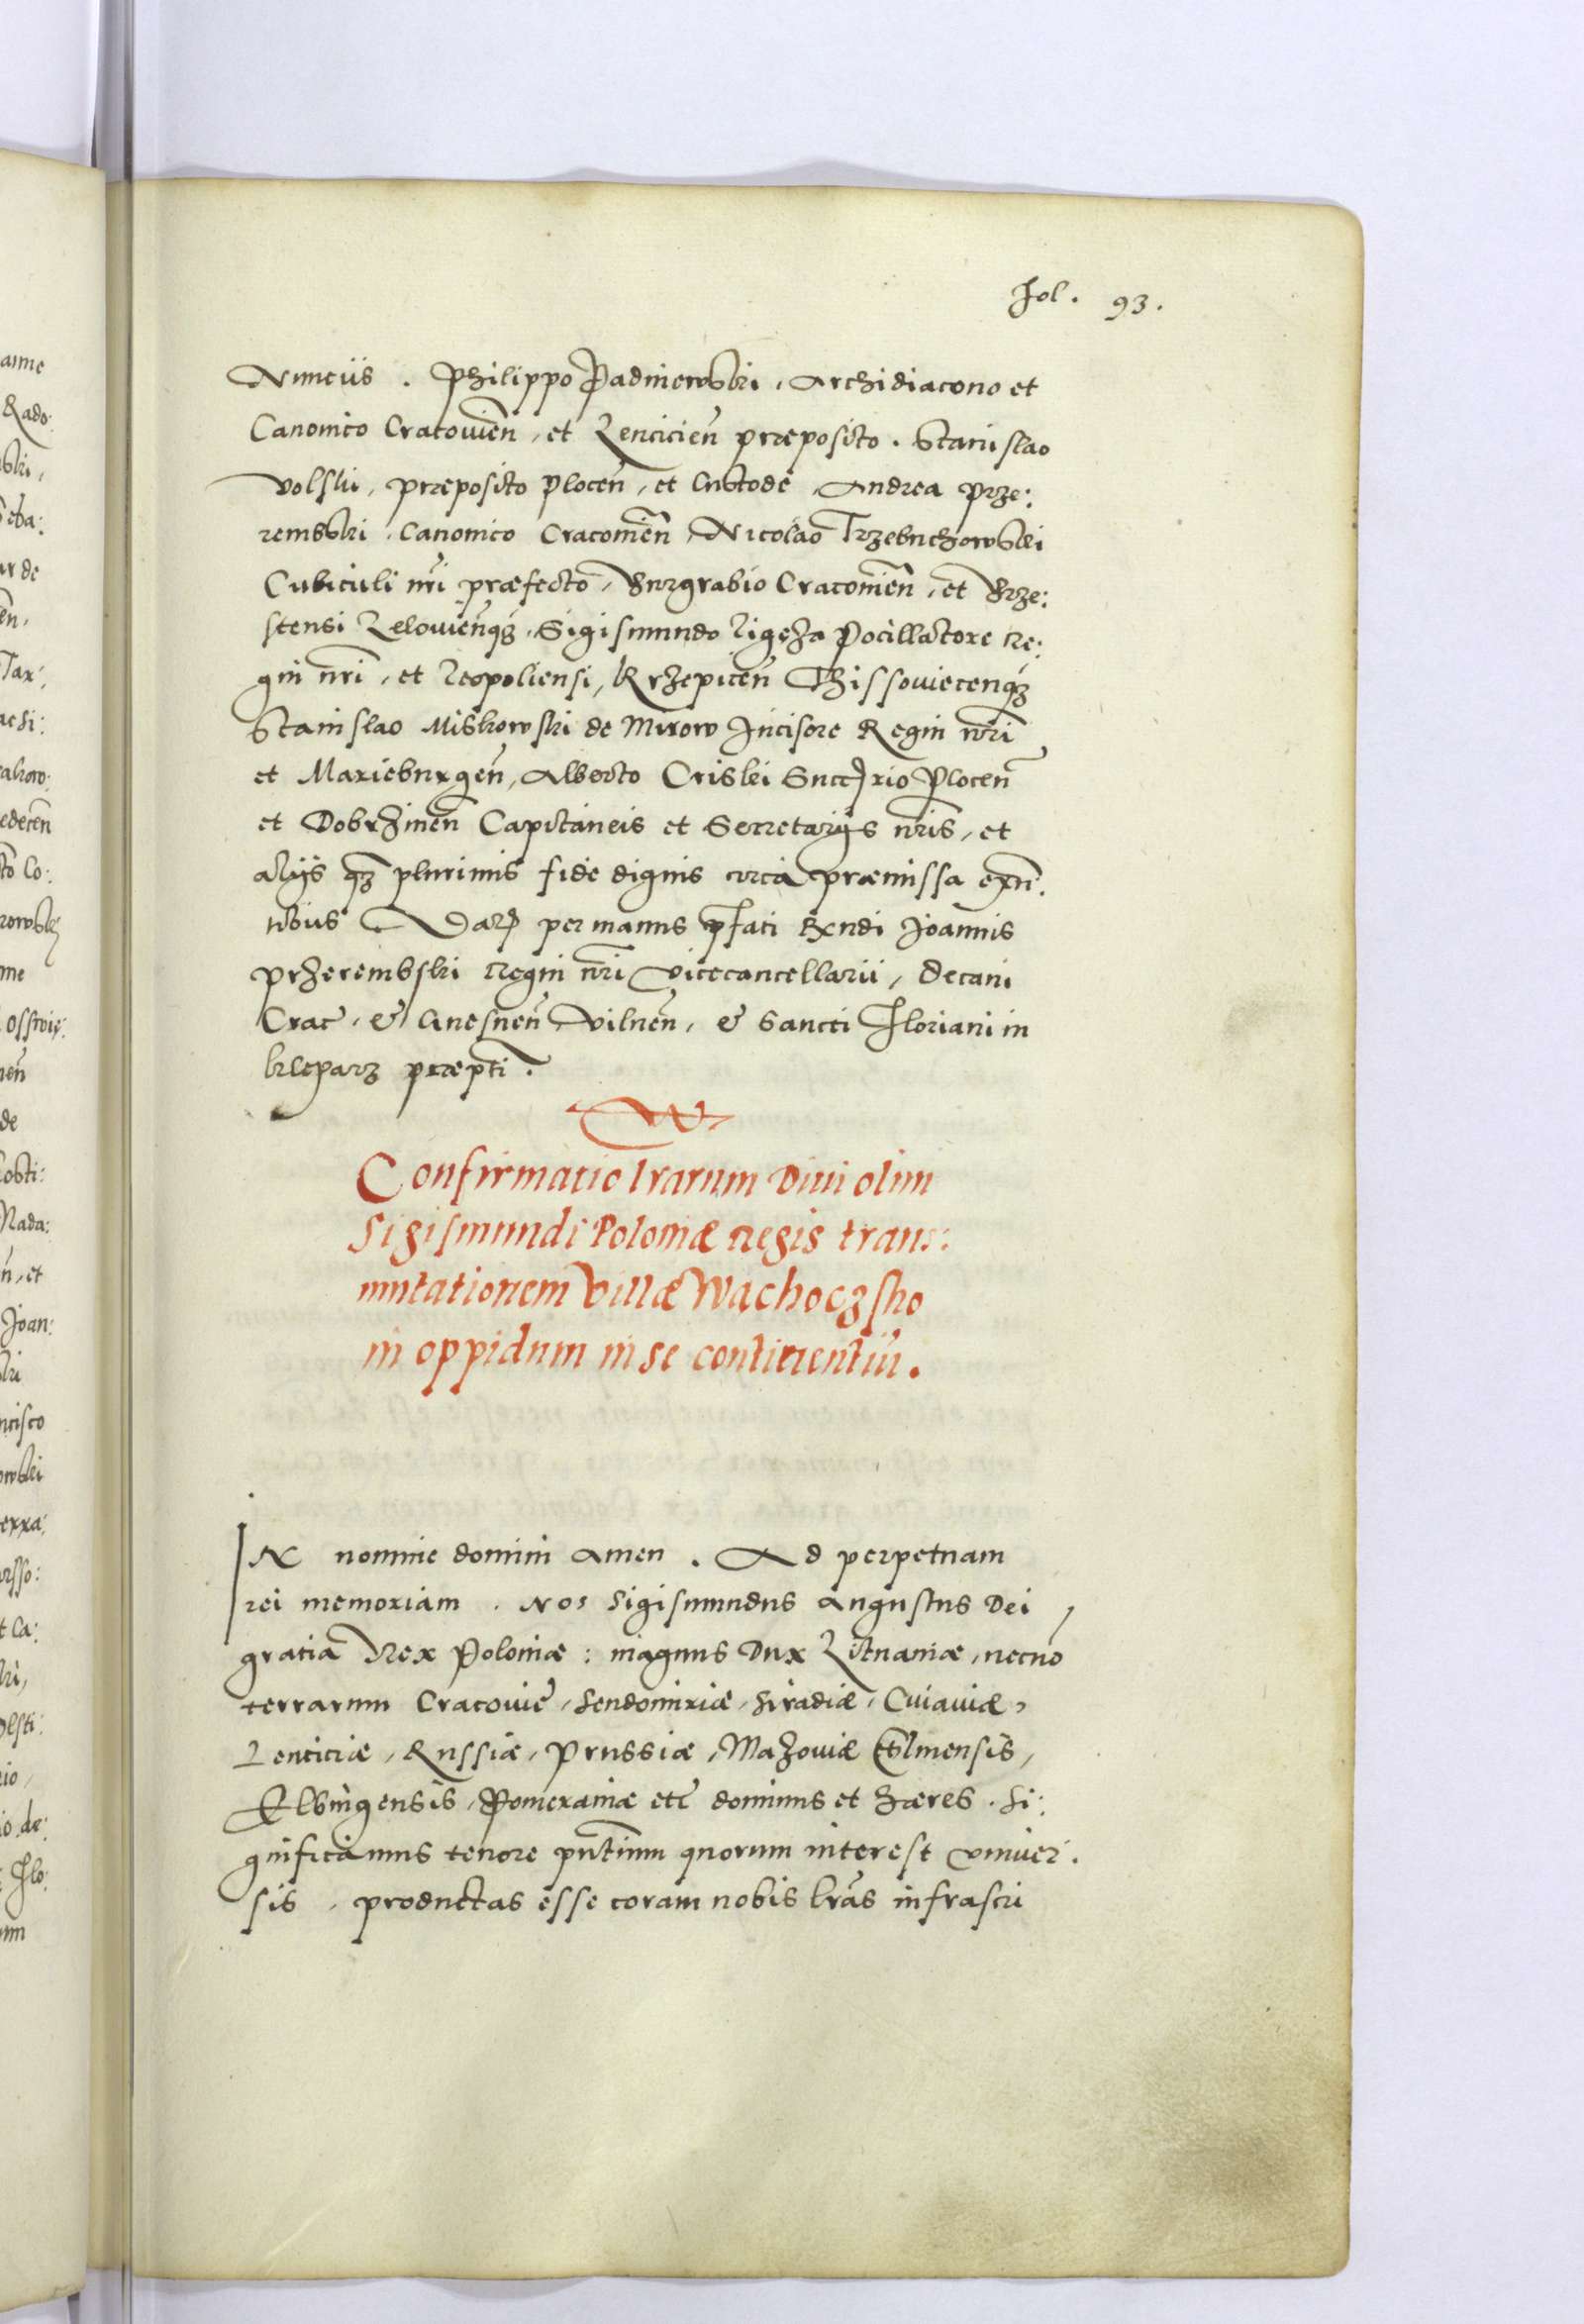 Fol. 93.
Nunciis. Philippo Padniewski, Archidiacono et
Canonico Cracovień, et Lencicień præposito. Stanislao
Volski, præposito Ploceń, et Custode, Andrea Prze:
rembski, Canonico Cracovień, Nicolao Trzebuchowski
Cubiculi nri præfecto, Burgrabio Cracovień, et Brze:
stensi Zelovieńqꝫ, Sigismundo Ligęza Pocillatore re:
gni nri, et Leopoliensi, Krzepiceń Thissoviecenqꝫ
Stanislao Miskowski de Mirow Incisore Regni nri
et Marieburgeń, Alberto Criski Succꝝrio Ploceń
et Dobrzineń Capitaneis et Secretarijs nris, et
alijs qꝫ plurimis fide dignis circa præmissa exn̄.
tibus Datꝝ per manus pfati Rxndi Joannis
Przerembski regni nri Vicecancellarii, decani
Crac. & Gnesneń Vilneń, & Sancti Floriani in
kleparz præpti.
Confirmatio lrarum Divi olim
Sigismundi Poloniæ regis trans:
mutationem Villæ Wachoczsko
in oppidum in se continentiū.
IN nomine domini amen. Ad perpetuam
rei memoriam. Nos Sigismundus Augustus Dei
gratia Rex Poloniæ: magnus Dux Lituaniæ, necnō
terrarum Cracovie, Sendomiriæ, Siradiæ, Cuiaviæ,
Lenciciæ, Russiæ, Prussiæ, Mazoviæ Culmensis,
Elbingensis, Pomeraniæ etc dominus et hæres. Si:
gnificamus tenore pntium quorum interest univer.
sis, productas esse coram nobis lras infrascri